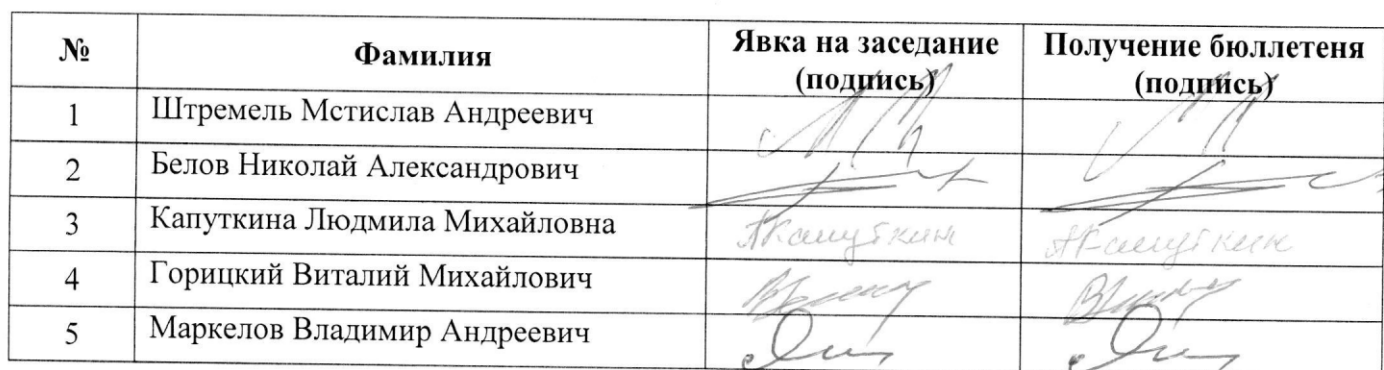 № Фамилия Явка на заседание (подпись) Получение бюллетеня (подпись)
1 Штремель Мстислав Андреевич
2 Белов Николай Александрович
3 Капуткина Людмила Михайловна
4 Горицкий Виталий Михайлович
5 Маркелов Владимир Андреевич